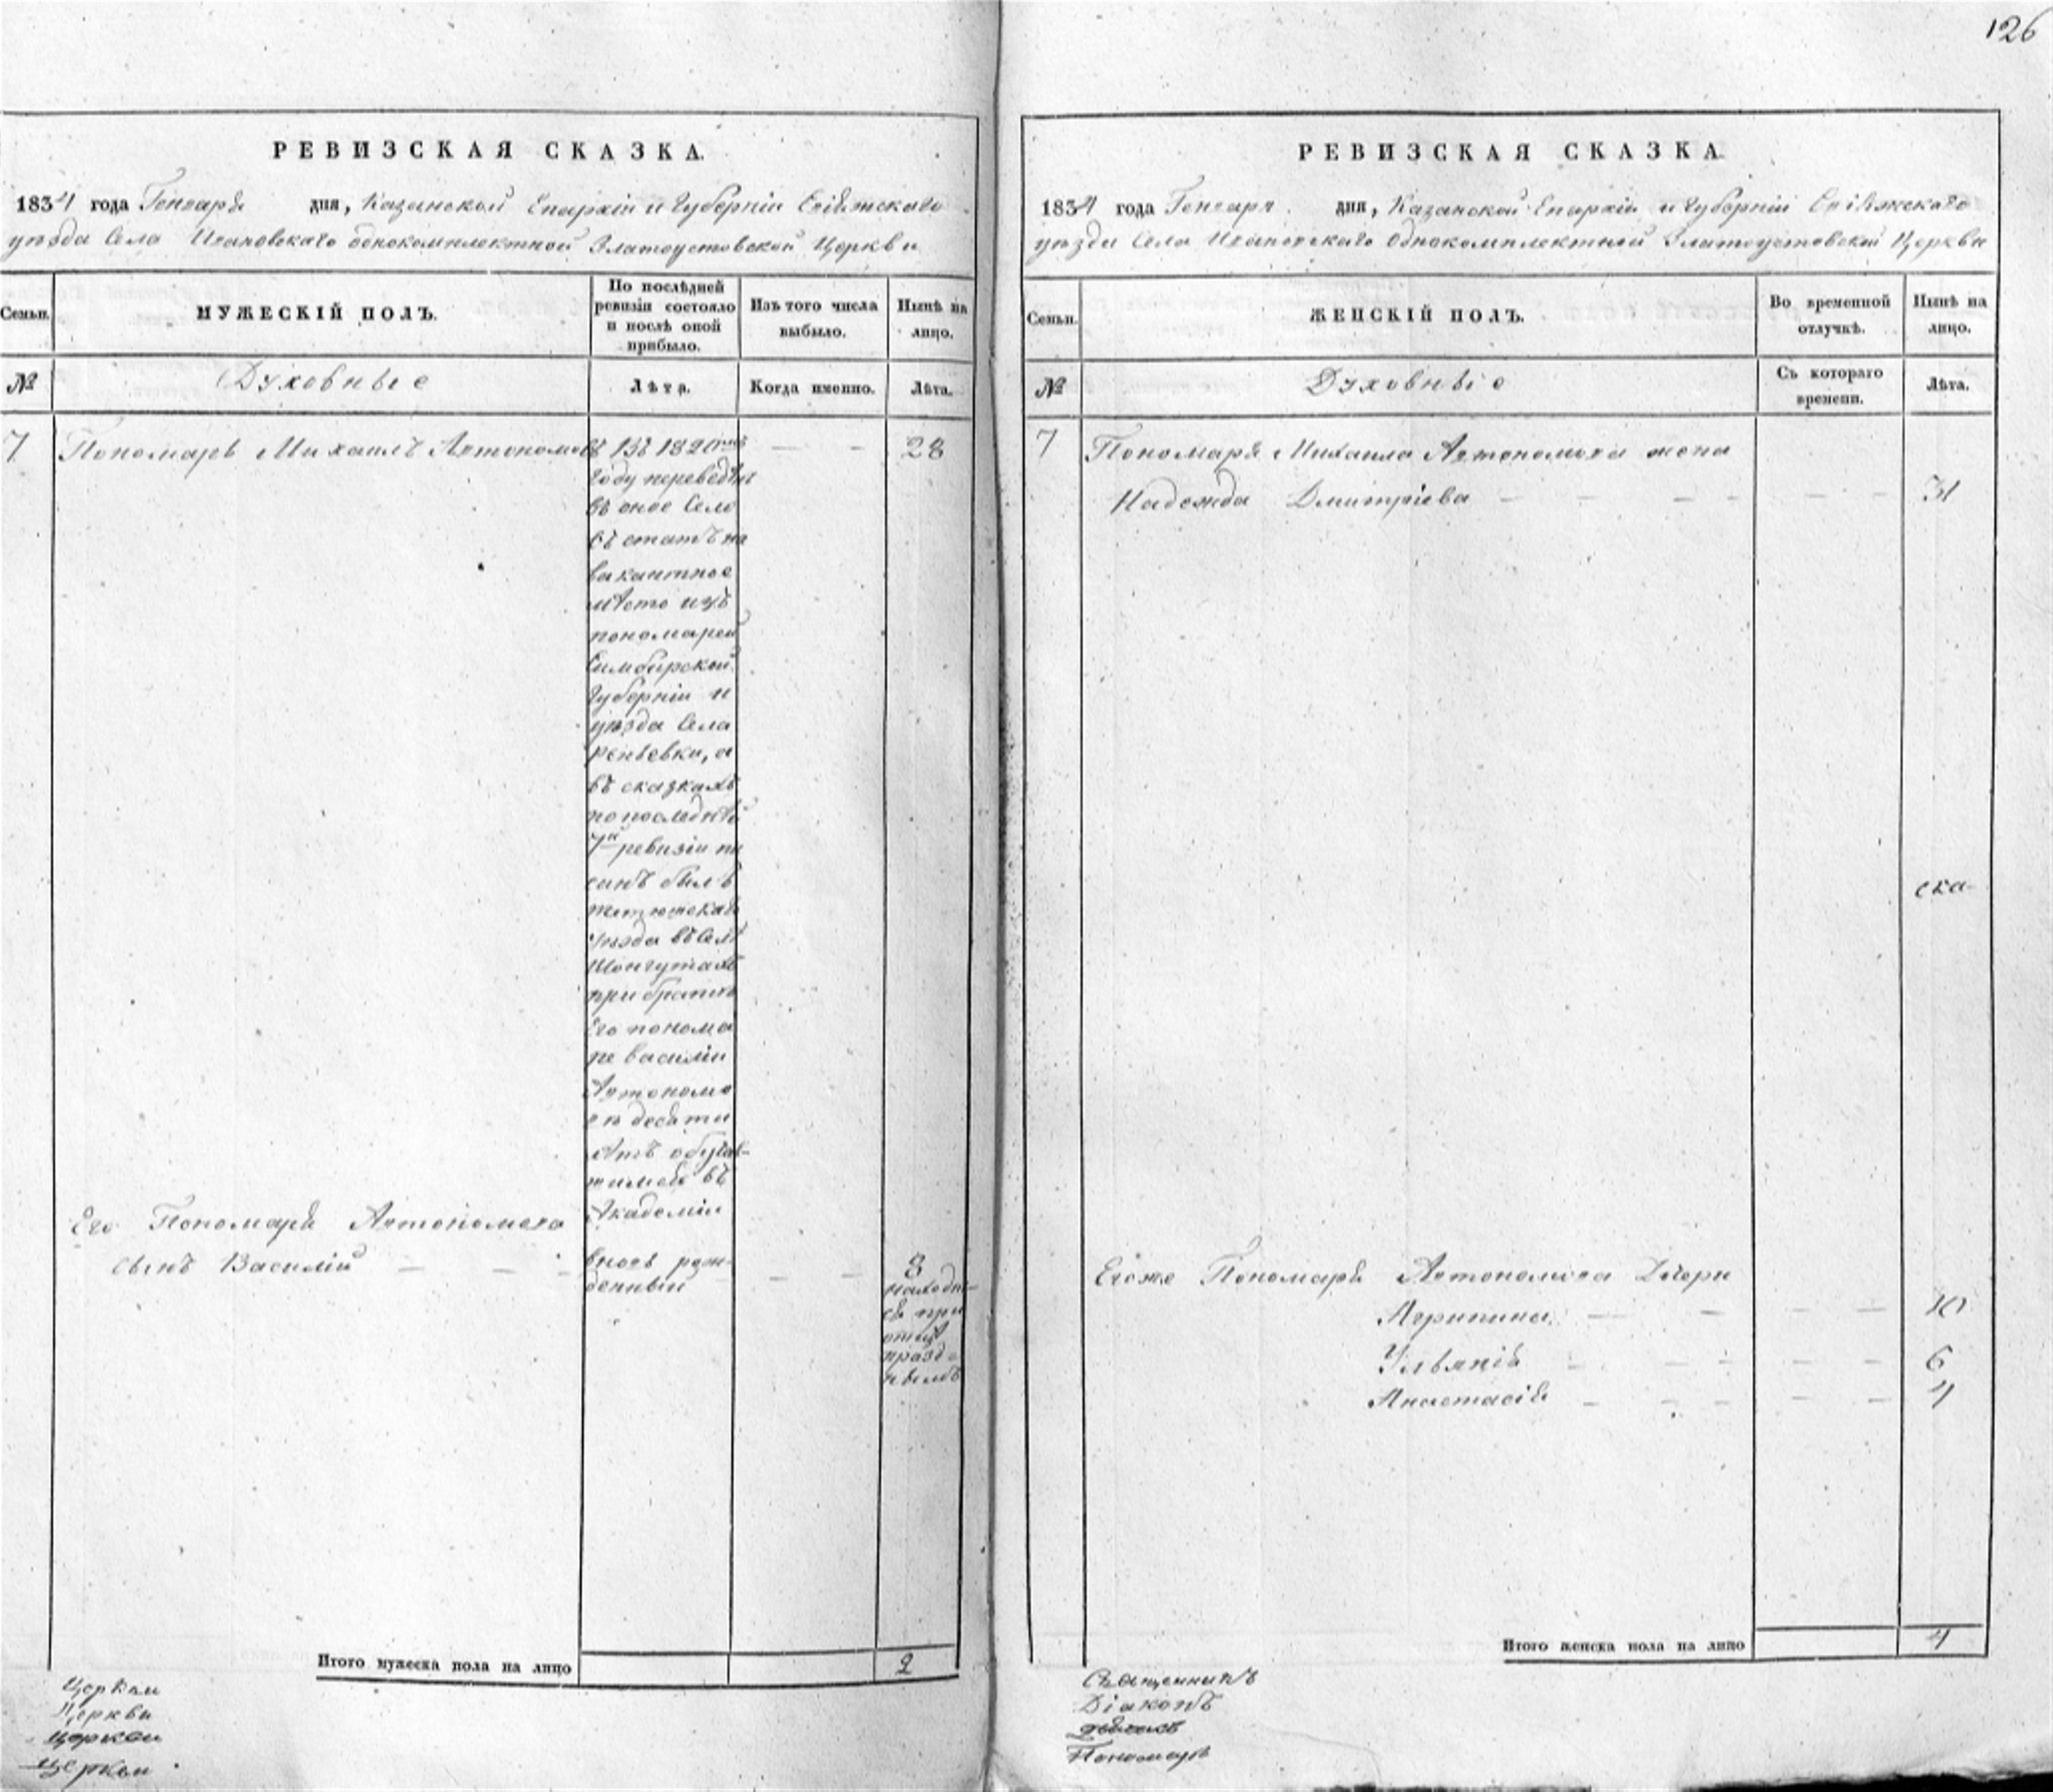 126
РЕВИЗСКАЯ СКАЗКА.
1834 года Генваря дня, Казанской Епархіи и Губерніи Свіяжскаго
уѣзда Села Ивановскаго однокомплектной Златоустовской Церкви
Семьи.
МУЖЕСКІЙ ПОЛЪ.
По послѣдней ревизіи состояло и послѣ оной прибыло.
Изъ того числа выбыло.
Нынѣ на лицо.
№
Духовные
Лѣта.
Когда именно.
Лѣта.
7 Пономарь Михаилъ Автономовъ Въ 1820мъ — — 28
году переведенъ
въ оное Село
въ статъ на
вакантное
мѣсто изъ
пономарей
Симбирской
Губерніи и
уѣзда Села
Реньевки, а
въ сказкахъ
по последней
7й ревизіи пи
санъ былъ
тетюшскаго
уѣзда въ Селѣ
Шонгутахъ
при братѣ
Его понома
ре Василіи
Автономо
вѣ десяти
лѣтъ обучав-
шимся въ
Академіи
Его Пономаря Автономова
сынъ Василій — — - вновь рож-
денный — — 8
находит-
ся при
отцѣ
празд-
нымъ
Итого мужеска пола на лицо 2
Церкви
Церкви
Церкви
Церкви
РЕВИЗСКАЯ СКАЗКА.
1834 года Генваря дня, Казанской Епархіи и Губерніи Свіяжскаго
уѣзда Села Ивановскаго Однокомплектной Златоустовской Церкви
Семьи.
ЖЕНСКІЙ ПОЛЪ.
Во временной отлучкѣ.
Нынѣ на лицо.
№
Духовные
Съ котораго времени.
Лѣта.
7 Пономаря Михаила Автономова жена
Надежда Дмитріева — — — - — — 31
ска-
Егоже Пономаря Автономова Дчери
Агрипина — — — — 10
Ульянія — — - — — 6
Анастасія — — - — — 4
Итого женска пола на лицо 4
Священникъ
Діаконъ
Пономарь